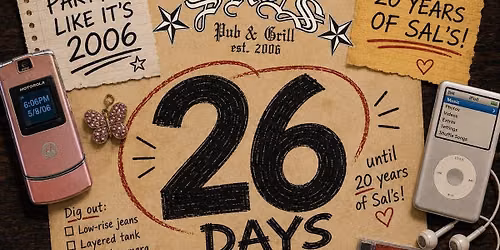 PARTY
LIKE IT'S
2006
Pub & Grill
est. 2006
20 YEARS
OF SAL'S!
MOTOROLA
6:06PM
5/8/06
iPod
Music
Photos
Videos
Extras
Settings
Shuffle Songs
MENU
26
DAYS
until
20 years
of Sal's!
Dig out:
Low-rise jeans
Layered tank